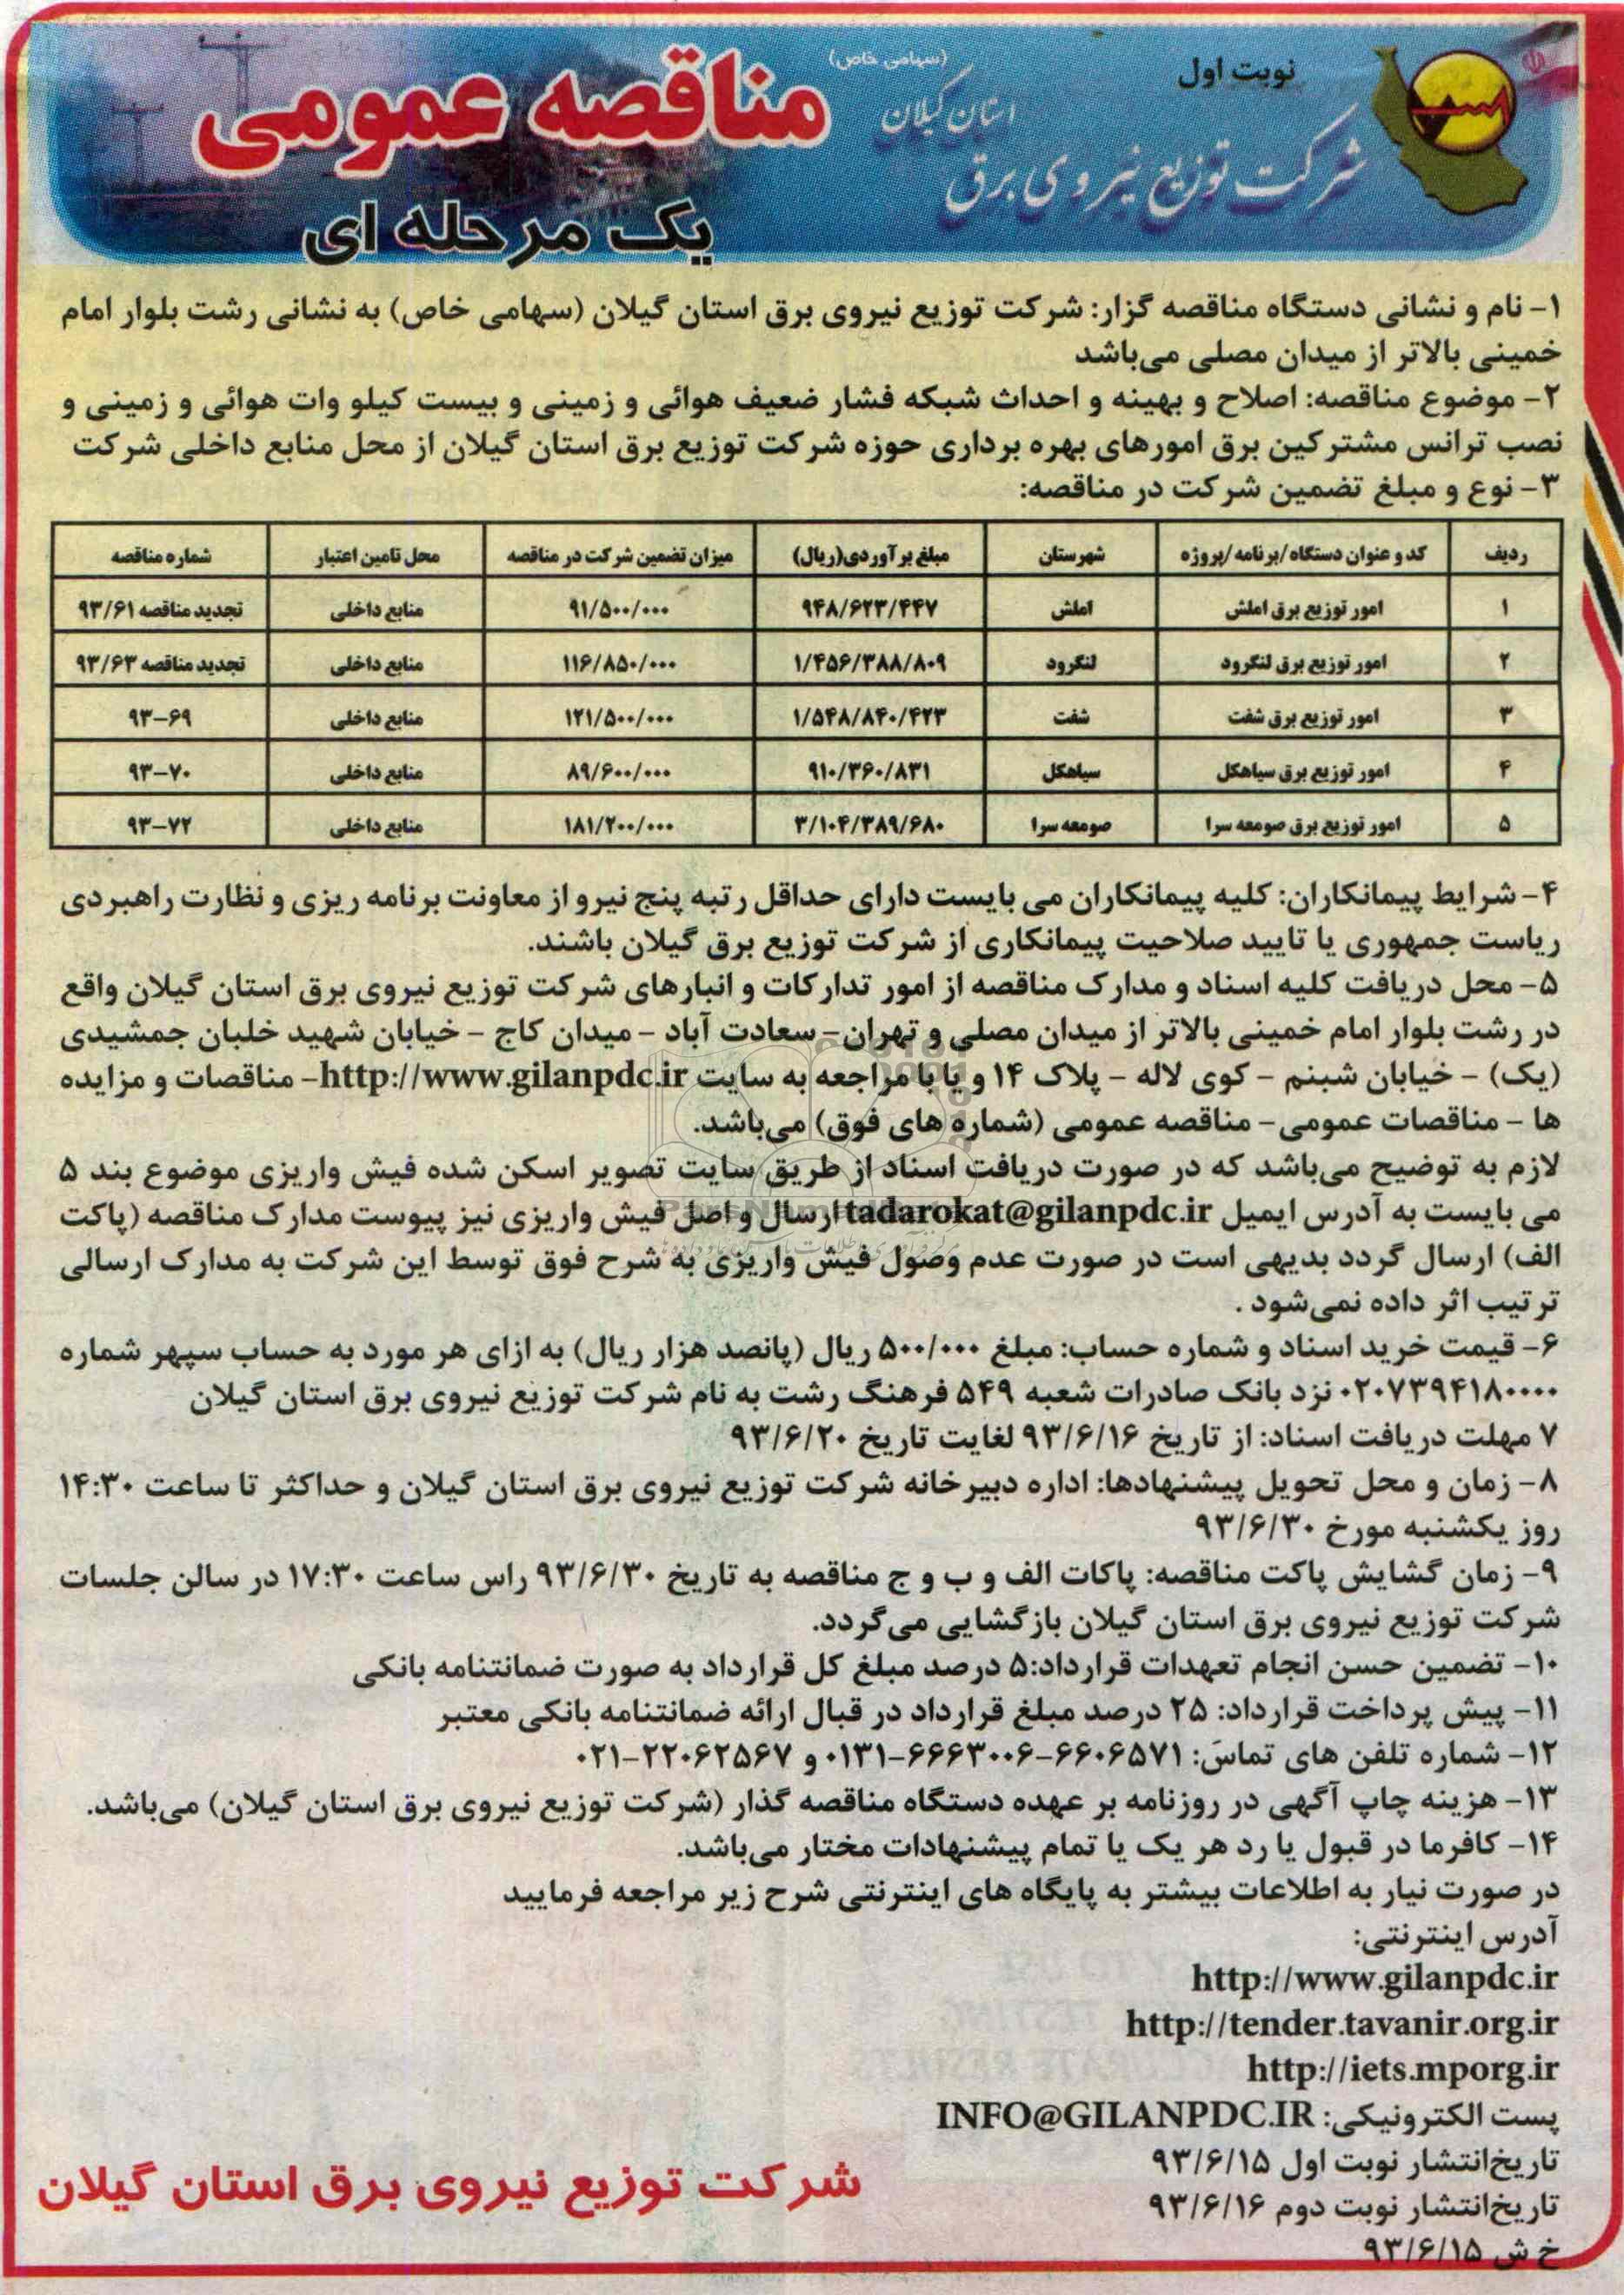 نوبت اول
(سهامی خاص)
استان گیلان
شرکت توزیع نیروی برق
مناقصه عمومی
یک مرحله ای
۱- نام و نشانی دستگاه مناقصه گزار: شرکت توزیع نیروی برق استان گیلان (سهامی خاص) به نشانی رشت بلوار امام
خمینی بالاتر از میدان مصلی می‌باشد
۲- موضوع مناقصه: اصلاح و بهینه و احداث شبکه فشار ضعیف هوائی و زمینی و بیست کیلو وات هوائی و زمینی و
نصب ترانس مشترکین برق امورهای بهره برداری حوزه شرکت توزیع برق استان گیلان از محل منابع داخلی شرکت
۳- نوع و مبلغ تضمین شرکت در مناقصه:
ردیف کد و عنوان دستگاه/برنامه/پروژه شهرستان مبلغ برآوردی(ریال) میزان تضمین شرکت در مناقصه محل تامین اعتبار شماره مناقصه
۱ امور توزیع برق املش املش ۹۴۸/۶۲۳/۴۴۷ ۹۱/۵۰۰/۰۰۰ منابع داخلی تجدید مناقصه ۹۳/۶۱
۲ امور توزیع برق لنگرود لنگرود ۱/۴۵۶/۳۸۸/۸۰۹ ۱۱۶/۸۵۰/۰۰۰ منابع داخلی تجدید مناقصه ۹۳/۶۳
۳ امور توزیع برق شفت شفت ۱/۵۴۸/۸۴۰/۴۲۳ ۱۲۱/۵۰۰/۰۰۰ منابع داخلی ۹۳-۶۹
۴ امور توزیع برق سیاهکل سیاهکل ۹۱۰/۳۶۰/۸۳۱ ۸۹/۶۰۰/۰۰۰ منابع داخلی ۹۳-۷۰
۵ امور توزیع برق صومعه سرا صومعه سرا ۳/۱۰۴/۳۸۹/۶۸۰ ۱۸۱/۲۰۰/۰۰۰ منابع داخلی ۹۳-۷۲
۴- شرایط پیمانکاران: کلیه پیمانکاران می بایست دارای حداقل رتبه پنج نیرو از معاونت برنامه ریزی و نظارت راهبردی
ریاست جمهوری یا تایید صلاحیت پیمانکاری از شرکت توزیع برق گیلان باشند.
۵- محل دریافت کلیه اسناد و مدارک مناقصه از امور تدارکات و انبارهای شرکت توزیع نیروی برق استان گیلان واقع
در رشت بلوار امام خمینی بالاتر از میدان مصلی و تهران- سعادت آباد - میدان کاج - خیابان شهید خلبان جمشیدی
(یک) - خیابان شبنم - کوی لاله - پلاک ۱۴ و یا با مراجعه به سایت http://www.gilanpdc.ir- مناقصات و مزایده
ها - مناقصات عمومی- مناقصه عمومی (شماره های فوق) می‌باشد.
لازم به توضیح می‌باشد که در صورت دریافت اسناد از طریق سایت تصویر اسکن شده فیش واریزی موضوع بند ۵
می بایست به آدرس ایمیل tadarokat@gilanpdc.ir ارسال و اصل فیش واریزی نیز پیوست مدارک مناقصه (پاکت
الف) ارسال گردد بدیهی است در صورت عدم وصول فیش واریزی به شرح فوق توسط این شرکت به مدارک ارسالی
ترتیب اثر داده نمی‌شود .
۶- قیمت خرید اسناد و شماره حساب: مبلغ ۵۰۰/۰۰۰ ریال (پانصد هزار ریال) به ازای هر مورد به حساب سپهر شماره
۰۲۰۷۳۹۴۱۸۰۰۰۰ نزد بانک صادرات شعبه ۵۴۹ فرهنگ رشت به نام شرکت توزیع نیروی برق استان گیلان
۷ مهلت دریافت اسناد: از تاریخ ۹۳/۶/۱۶ لغایت تاریخ ۹۳/۶/۲۰
۸- زمان و محل تحویل پیشنهادها: اداره دبیرخانه شرکت توزیع نیروی برق استان گیلان و حداکثر تا ساعت ۱۴:۳۰
روز یکشنبه مورخ ۹۳/۶/۳۰
۹- زمان گشایش پاکت مناقصه: پاکات الف و ب و ج مناقصه به تاریخ ۹۳/۶/۳۰ راس ساعت ۱۷:۳۰ در سالن جلسات
شرکت توزیع نیروی برق استان گیلان بازگشایی می‌گردد.
۱۰- تضمین حسن انجام تعهدات قرارداد:۵ درصد مبلغ کل قرارداد به صورت ضمانتنامه بانکی
۱۱- پیش پرداخت قرارداد: ۲۵ درصد مبلغ قرارداد در قبال ارائه ضمانتنامه بانکی معتبر
۱۲- شماره تلفن های تماس: ۶۶۰۶۵۷۱-۶۶۶۳۰۰۶-۰۱۳۱ و ۲۲۰۶۲۵۶۷-۰۲۱
۱۳- هزینه چاپ آگهی در روزنامه بر عهده دستگاه مناقصه گذار (شرکت توزیع نیروی برق استان گیلان) می‌باشد.
۱۴- کافرما در قبول یا رد هر یک یا تمام پیشنهادات مختار می‌باشد.
در صورت نیار به اطلاعات بیشتر به پایگاه های اینترنتی شرح زیر مراجعه فرمایید
آدرس اینترنتی:
http://www.gilanpdc.ir
http://tender.tavanir.org.ir
http://iets.mporg.ir
پست الکترونیکی: INFO@GILANPDC.IR
تاریخ‌انتشار نوبت اول ۹۳/۶/۱۵
تاریخ‌انتشار نوبت دوم ۹۳/۶/۱۶
خ ش ۹۳/۶/۱۵
شرکت توزیع نیروی برق استان گیلان